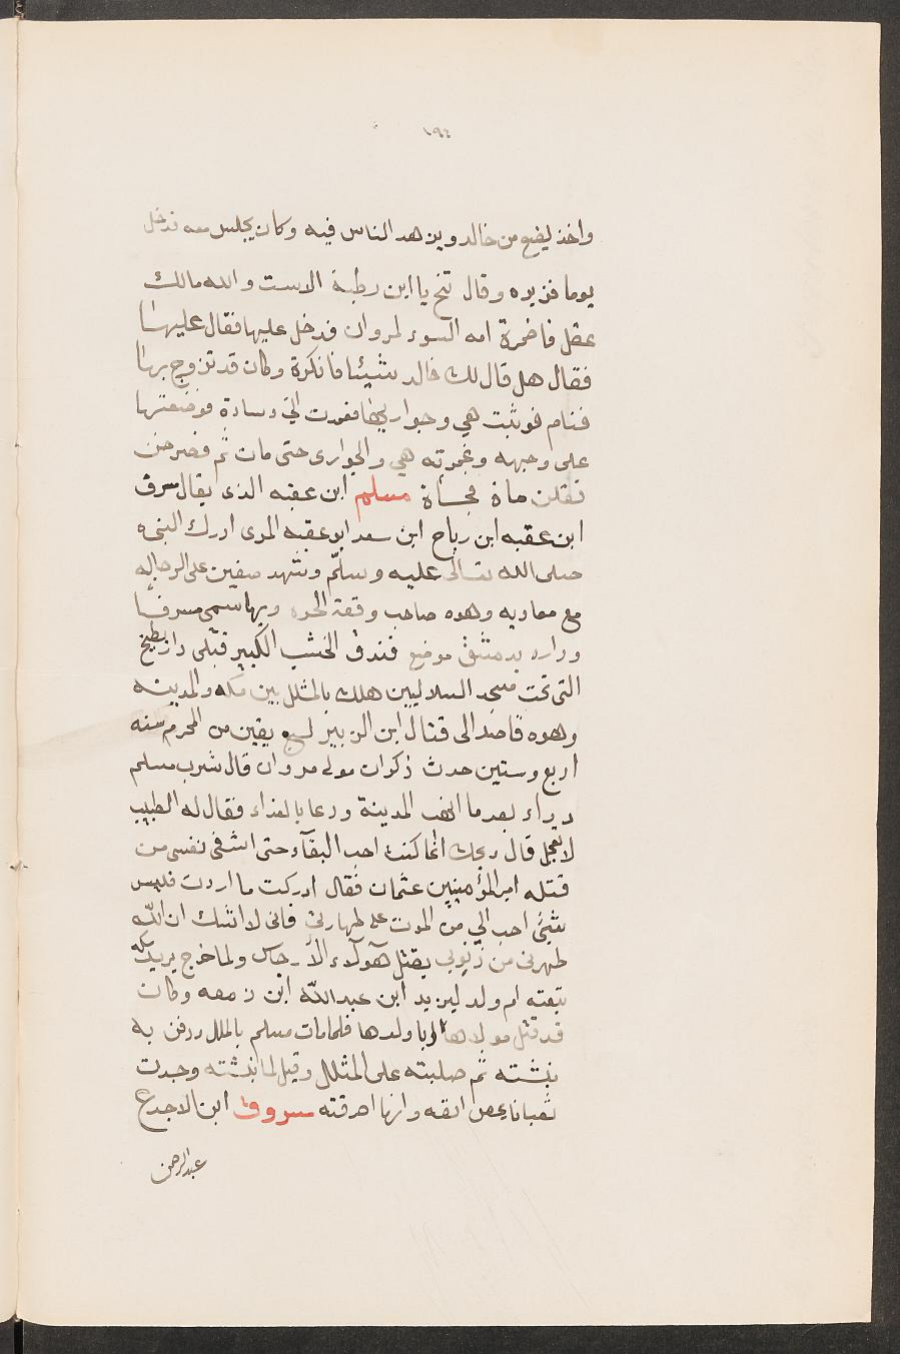 ١٩٤
واخذ يضع من خالد ويزهد الناس فيه وكان يجلس معه فدخل
يوما فزبره وقال تنح يا ابن رطبة الاست والله مالك
عقل فاضمرة امه السوء لمروان فدخل عليها فقال عليها
فقال هل قال لك خالد شيئا فانكرة وكان قد تزوج بها
فنام فوثبت هي وجواريها فعمدت الى وسادة فوضعتها
على وجهه وغمرته هي والجوارى حتى مات ثم فصرخن
فقلن ماة فجاة مسلم ابن عقبه الذى يقال سرف
ابن عقبه ابن رباح ابن سعد ابو عقبه المرى ادرك النبى
صلى الله تعالى عليه وسلّم وشهد صفين على الرجاله
مع معاويه وهوه صاحب وقعة الحره وبها سمى مسرفًا
وداره بدمشق موضع فندق الخشب الكبير قبلى دار بطيخ
التى تحت مسجد السلاليين هلك بالمثلل بين مكه والمدينه
وهوه قاصد الى قتال ابن الزبير لسبع بقين من المحرم سنه
اربع وستين حدث ذكوان مولى مروان قال شرب مسلم
دواء بعد ما انهب المدينة ودعا بالغذاء فقال له الطبيب
لا تعجل قال ويحك انما كنت احب البقآء حتى اشفى نفسى من
قتله امير المؤمنيين عثمان فقال ادركت ما اردت فليس
شيئ احب الي من الموت على طهارتي فانى لا اشك ان اللّه
طهرنى من ذنوبى بقتل هآولآء الأرجاس ولما خرج يريد مكه
تبعته ام ولد ليزيد ابن عبد اللّه ابن زمعه وكان
قد قتل مولاها ابا ولدها فلما مات مسلم بالملل ودفن به
نبشته ثم صلبته على المثلل وقيل لما نبشته وجدت
ثعبانا يمص انفه وانها احرقته سروق ابن الاجدع
عبد الرحمن